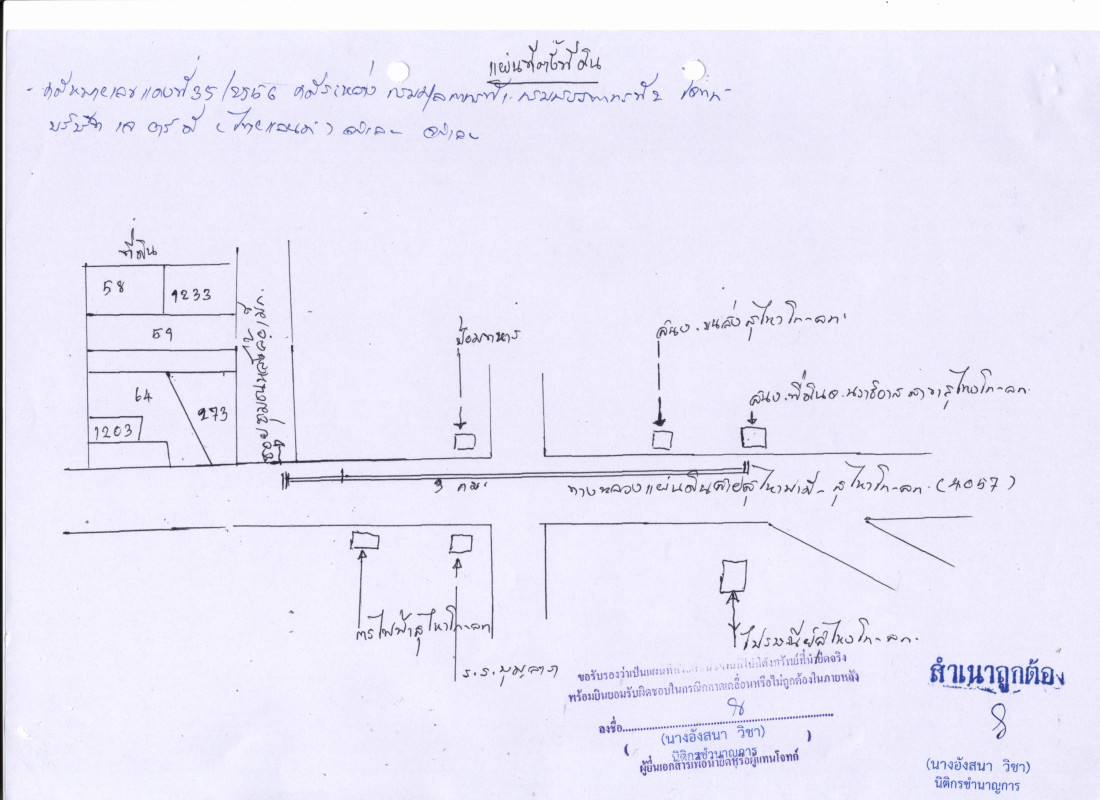 แผนที่ตั้งที่ดิน
คดีหมายเลขแดงที่ 35/2566 คดีระหว่าง กรมศุลกากรที่ 1 กรมสรรพากรที่ 2 โจทก์
บริษัท เจ อาร์ ดี (ไทยแลนด์) จำกัด จำเลย
ที่ดิน
58
1233
59
64
273
1203
ซอยชุมชนหลังล่อเม็ก
ป้อมทหาร
สนง.ขนส่งสุไหงโก-ลก
สนง.ที่ดินจ.นราธิวาส สาขาสุไหงโก-ลก
3 กม.
ทางหลวงแผ่นดินสายสุไหงปาดี - สุไหงโก-ลก (4057)
การไฟฟ้าสุไหงโก-ลก
ร.ร.
ไปรษณีย์สุไหงโก-ลก
ขอรับรองว่าเป็นแผนที่ ไปถึงทรัพย์ที่นำยึดจริง
พร้อมยินยอมรับผิดชอบในกรณีคลาดเคลื่อนหรือไม่ถูกต้องในภายหลัง
ลงชื่อ
(นางอังสนา วิชา)
นิติกรชำนาญการ
ผู้ยื่นเอกสารเพื่อนำยึดหรือผู้แทนโจทก์
สำเนาถูกต้อง
(นางอังสนา วิชา)
นิติกรชำนาญการ